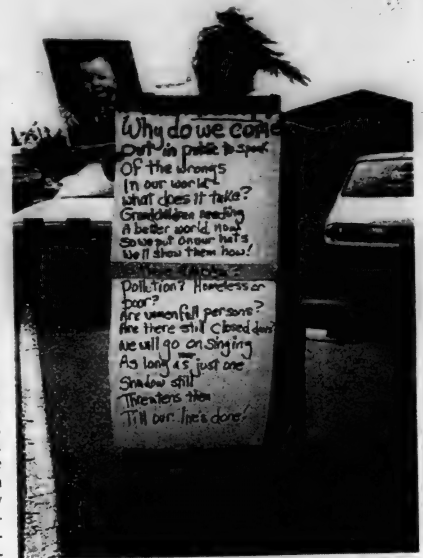 Why do we come
out in public to speak
Of the wrongs
In our world
What does it take?
Grandchildren needing
A better world now
So we put on our hats
We'll show them how!
Pollution? Homeless or
poor?
Are women full persons?
Are there still closed doors?
We will go on singing
As long as just one
Shadow still
Threatens them
Till our life's done!